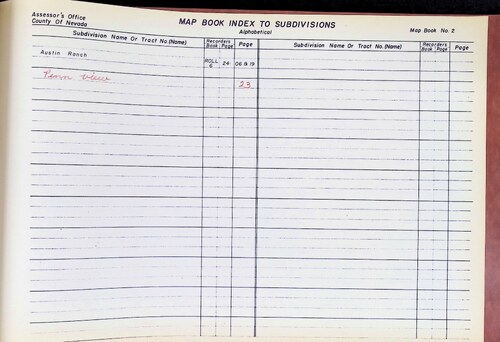 Assessor's Office
County Of Nevada
MAP BOOK INDEX TO SUBDIVISIONS
Alphabetical
Map Book No. 2
Subdivision Name Or Tract No.(Name) Recorders Book Page Page Subdivision Name Or Tract No.(Name) Recorders Book Page Page
Austin Ranch ROLL 5 24 06 & 19
Penn View 23